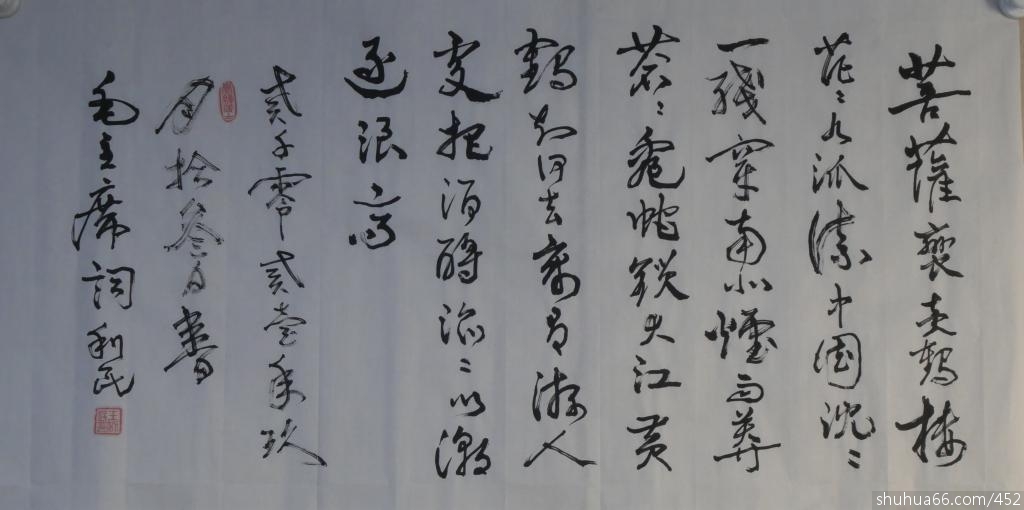 菩薩蠻黃鶴樓
茫〻九派流中國沈〻
一綫穿南北煙雨莽
蒼〻龜蛇鎖大江黃
鶴知何去剩有游人
處把酒酹滔〻心潮
逐浪高
贰千零贰壹年玖
月拾叁日書
毛主席詞利民
shuhua66.com/452